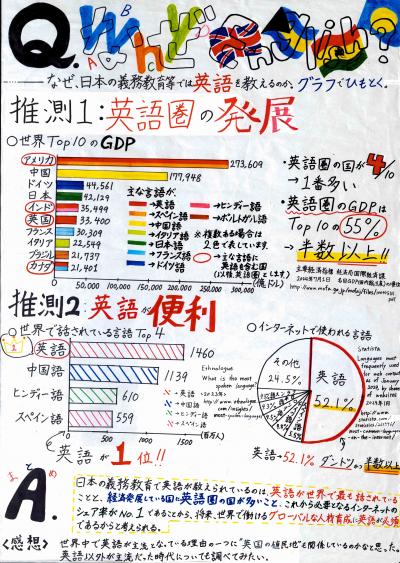 Q. Why English?
なぜ、日本の義務教育等では英語を教えるのか、グラフでひもとく。
推測1:英語圏の発展
○世界Top10のGDP
アメリカ 273,609
中国 177,948
ドイツ 44,561
日本 42,129
インド 35,499
英国 33,400
フランス 30,309
イタリア 22,549
ブラジル 21,737
カナダ 21,401
50,000 100,000 150,000 200,000 250,000 300,000 (億ドル)
主な言語が、
→英語
→スペイン語
→中国語
→イタリア語
→日本語
→フランス語
→ドイツ語
→ヒンデー語
→ポルトガル語
※複数ある場合は
2色で表しています。
→主に言語に
英語を含む国
(以後英語圏とします)
・英語圏の国が4/10
→1番多い
・英語圏のGDPは
Top10の55%
→半数以上!!
推測2:英語が便利
○世界で話されている言語Top4
英語 1460
中国語 1139
ヒンデー語 610
スペイン語 559
0 500 1000 1500 (百万人)
Ethnologue
What is the most
spoken language?
→英語
→中国語
→ヒンデー語
→スペイン語
英語が1位!!
○インターネットで使われる言語
英語
52.1%
その他
24.5%
Statista
Languages most
frequently used
for web content
as of January
英語→52.1% ダントツの半数以上
まとめ
A.
日本の義務教育で英語が教えられているのは、英語が世界で最も話されている
ことと、経済発展している国に英語圏の国が多いこと、これから必要となるインターネットの
シェア率がNo.1であることから、将来、世界で働けるグローバルな人材育成に英語が必須
であるからと考えられる。
<感想>
世界中で英語が主流となっている理由の一つに"英国の植民地"も関係しているのかなと思った。
英語以外が主流だった時代についても調べてみたい。